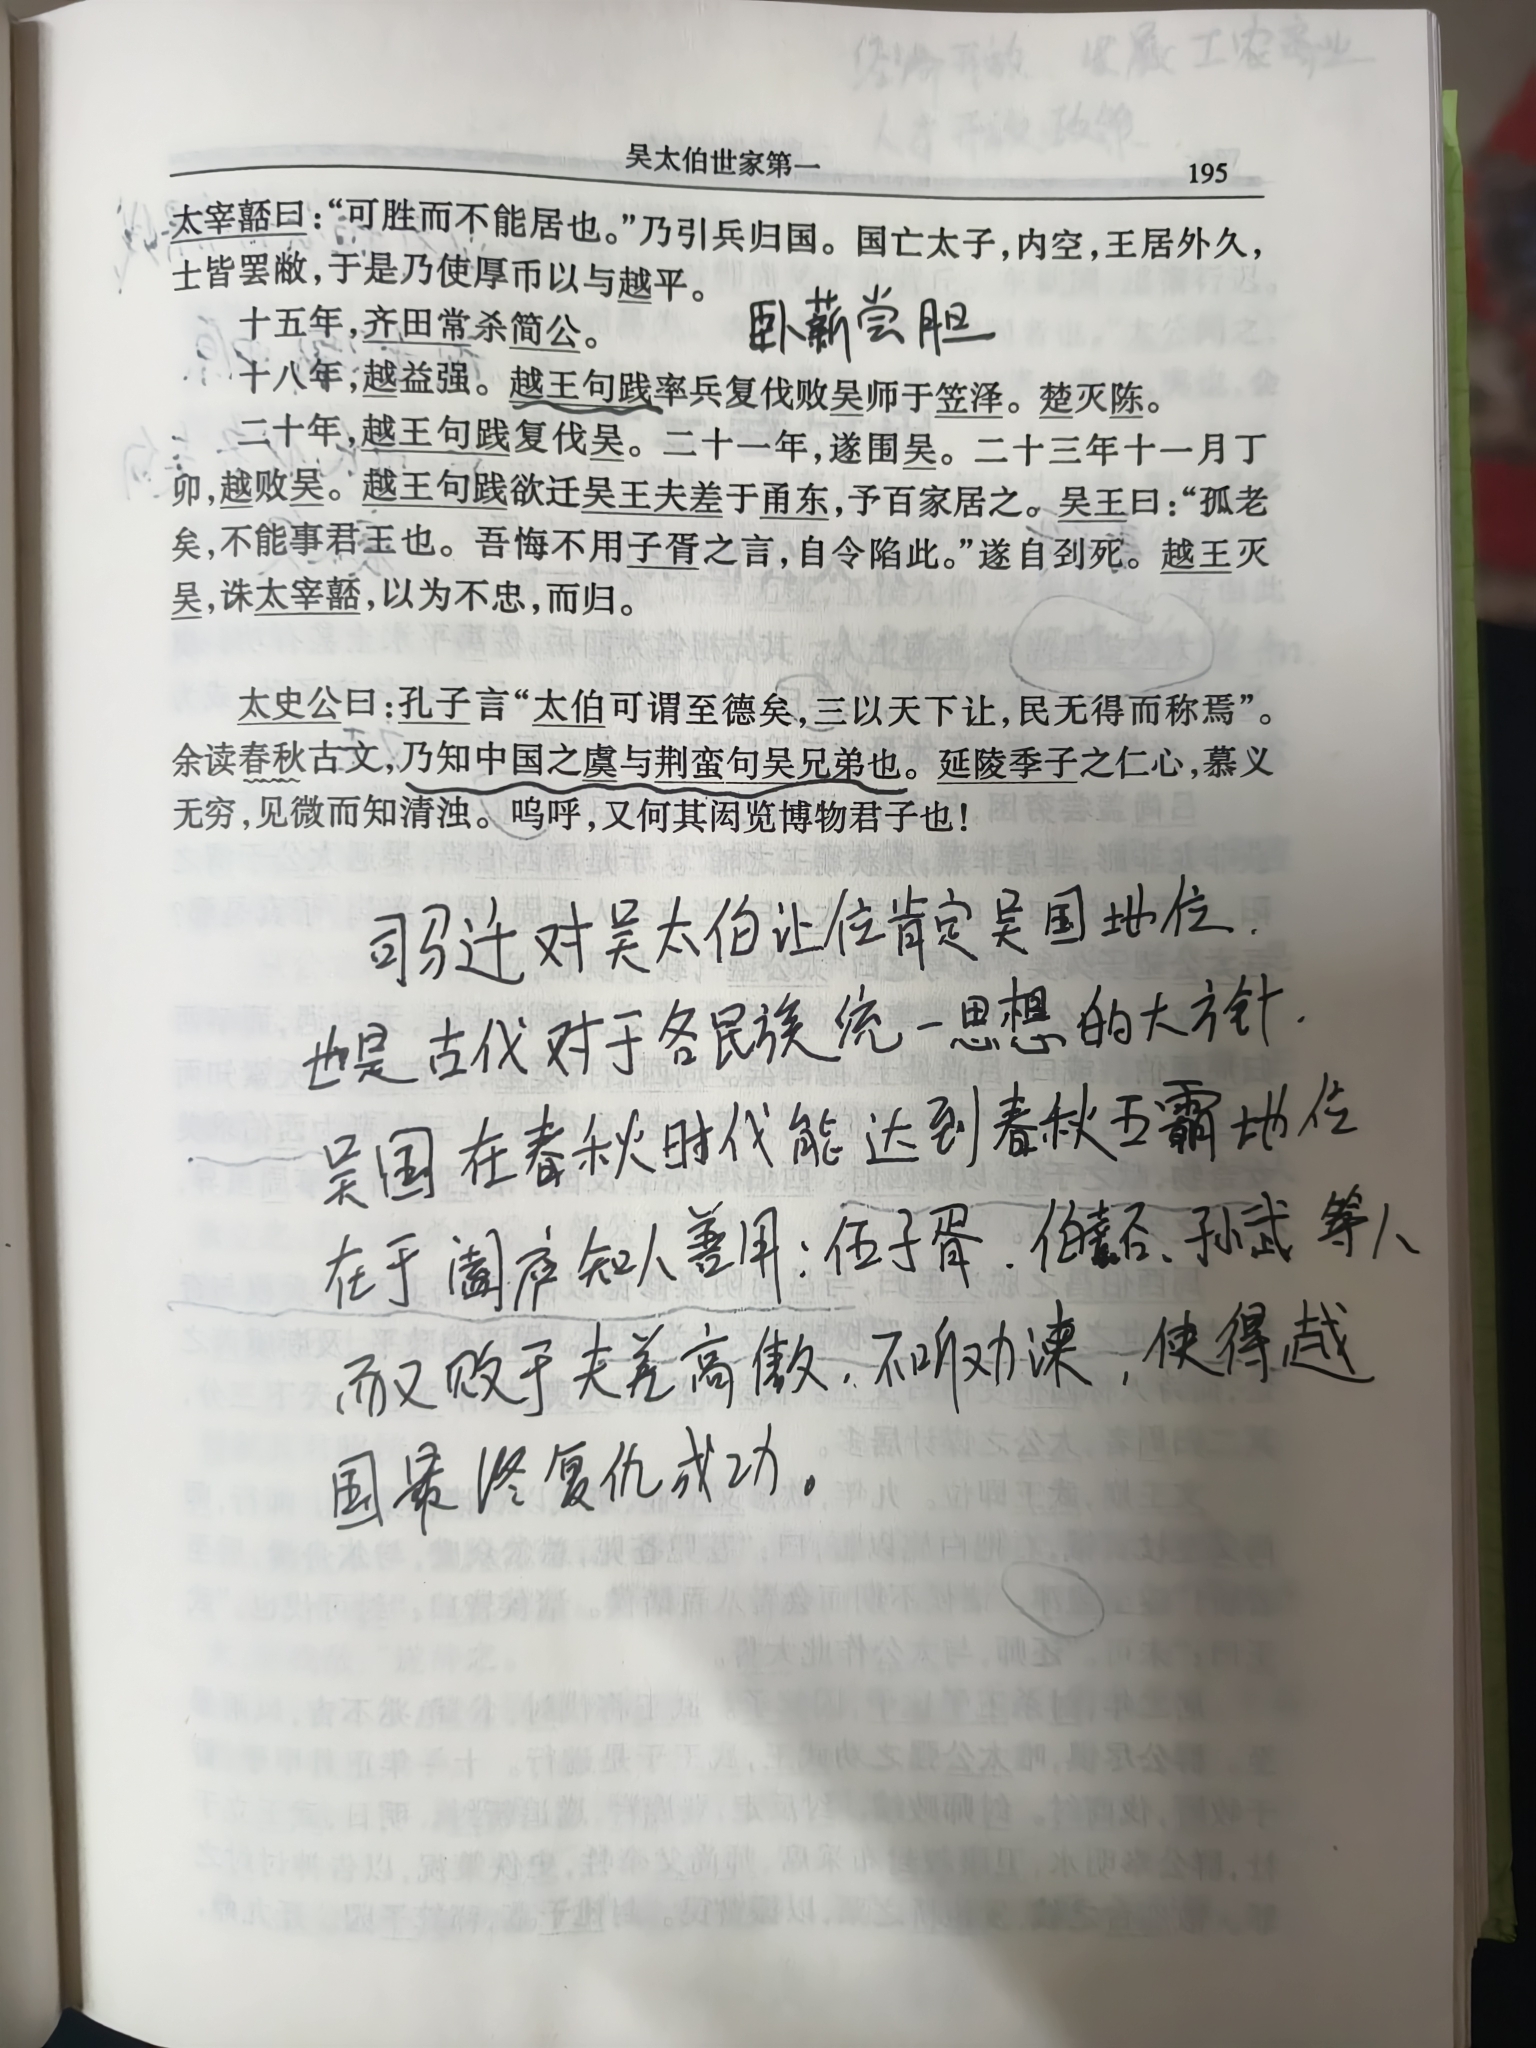 吴太伯世家第一
195
太宰嚭曰：“可胜而不能居也。”乃引兵归国。国亡太子，内空，王居外久，
士皆罢敝，于是乃使厚币以与越平。
十五年，齐田常杀简公。
卧薪尝胆
十八年，越益强。越王句践率兵复伐败吴师于笠泽。楚灭陈。
二十年，越王句践复伐吴。二十一年，遂围吴。二十三年十一月丁
卯，越败吴。越王句践欲迁吴王夫差于甬东，予百家居之。吴王曰：“孤老
矣，不能事君王也。吾悔不用子胥之言，自令陷此。”遂自刭死。越王灭
吴，诛太宰嚭，以为不忠，而归。
太史公曰：孔子言“太伯可谓至德矣，三以天下让，民无得而称焉”。
余读春秋古文，乃知中国之虞与荆蛮句吴兄弟也。延陵季子之仁心，慕义
无穷，见微而知清浊。呜呼，又何其闳览博物君子也！
司马迁对吴太伯让位肯定吴国地位.
也是古代对于各民族统一思想的大方针.
吴国在春秋时代能达到春秋五霸地位
在于阖庐知人善用：伍子胥.伯嚭、孙武等人
而又败于夫差高傲.不听劝谏，使得越
国最终复仇成功。